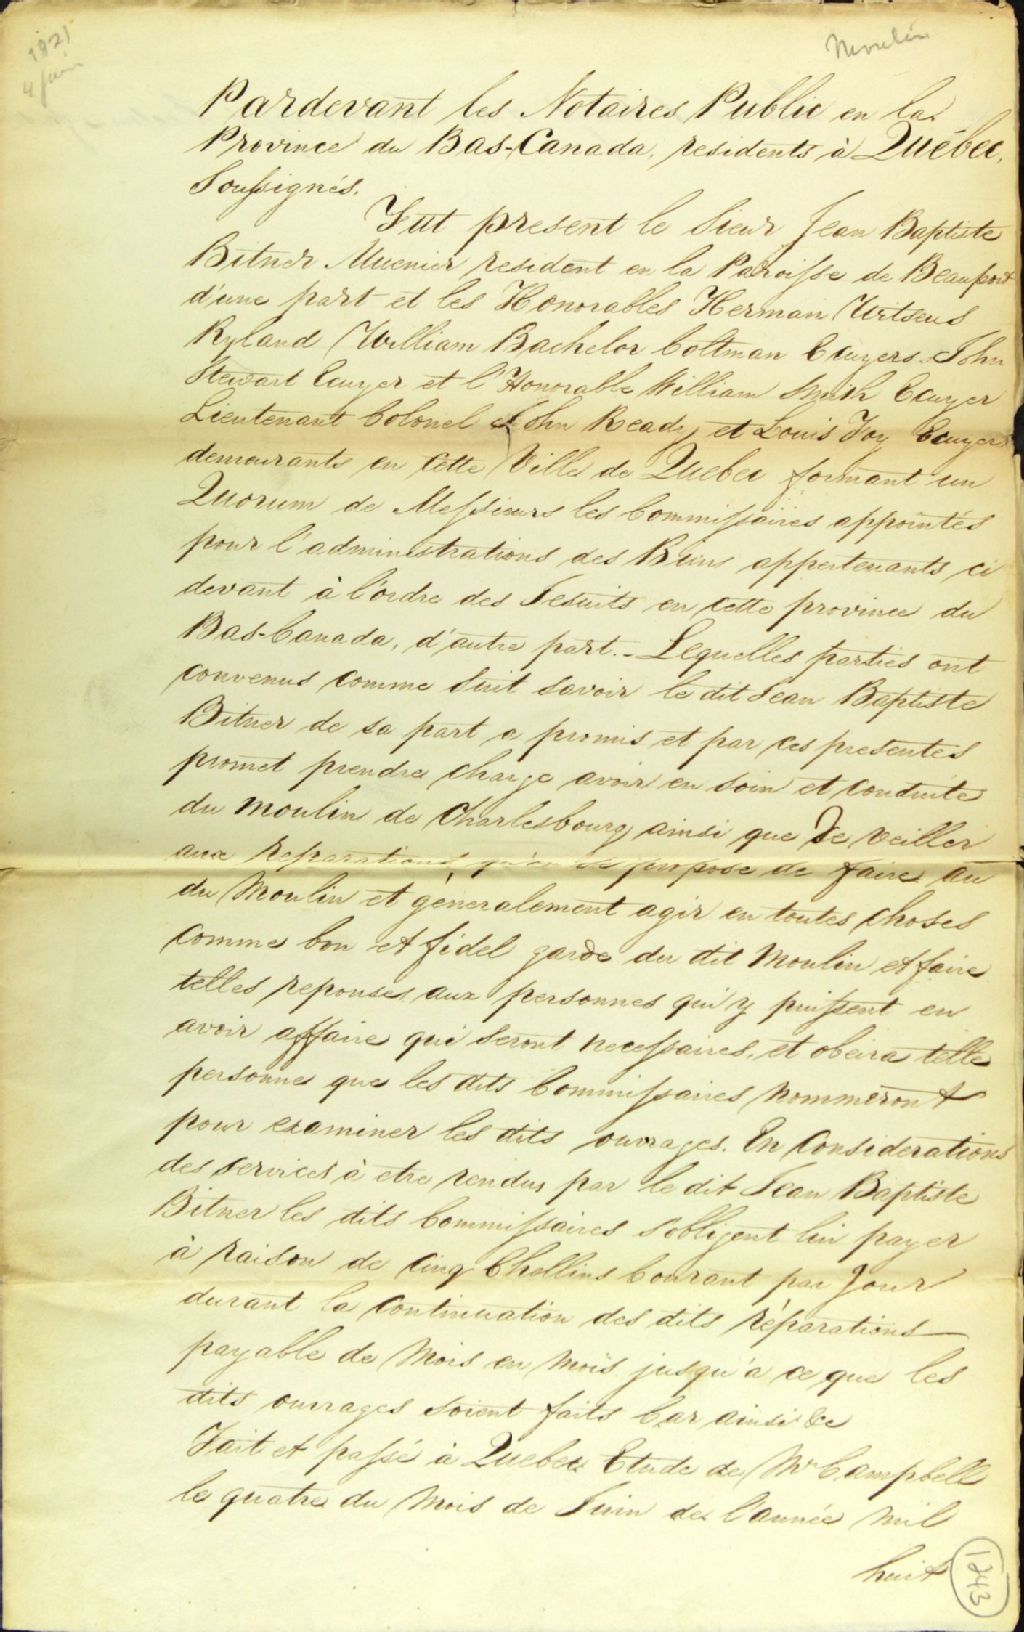 1821
4 Juin
Moulin
Pardevant les Notaires Public en la
Province du Bas-Canada, residents à Québec,
Soussignés.
Fut present le Sieur Jean Baptiste
Bitner Meunier resident en la Paroisse de Beauport
d'une part et les Honorables Herman Witseus
Ryland William Bachelor Coltman Ecuyers John
Stewart Ecuyer et l'Honorable William Smith Ecuyer
Lieutenant Colonel John Ready et Louis Foy Ecuyers
demeurants en cette Ville de Quebec formant un
Quorum de Messieurs les Commissaires appointés
pour l'administrations des Biens appertenants ci
devant à l'ordre des Jesuits en cette province du
Bas-Canada, d'autre part. - Lequelles parties ont
convenus comme suit savoir le dit Jean Baptiste
Bitner de sa part a promis et par ces presentes
promet prendre charge avoir en soin et conduite
du moulin de Charlesbourg ainsi que de veiller
aux reparations qu'on se propose de faire au
du Moulin et généralement agir en toutes choses
comme bon et fidel garde du dit Moulin et faire
telles reponses aux personnes qui y puissent en
avoir affaire qui seront necessaires, et obeira telle
personne que les dits Commissaires nommeront
pour examiner les dits ouvrages. En Considerations
des services à etre rendus par le dit Jean Baptiste
Bitner les dits Commissaires s'obligent lui payer
à raison de Cinq Chellins Courant par Jour
durant la Continuation des dits réparations
payable de Mois en Mois jusqu'a ce que les
dits ouvrages soient faits Car ainsi &c
Fait et passé à Quebec Etude de Mr Campbell
le quatre du Mois de Juin de l'année mil
huit
1243